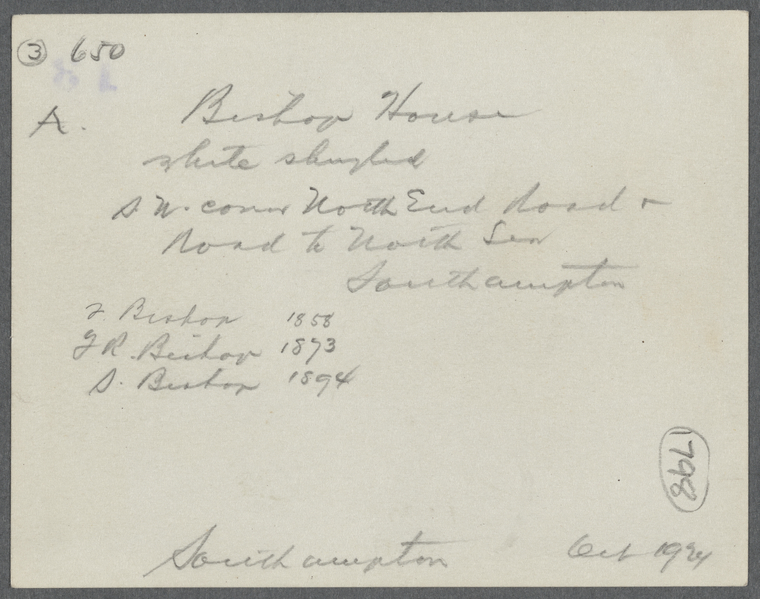 3 650
A. Bishop House
white shingled
S W. corner North End Road &
Road to North Sea
Southampton
Bishop 1858
J R. Bishop 1873
S. Bishop 1894
1798
Southampton Oct 1924